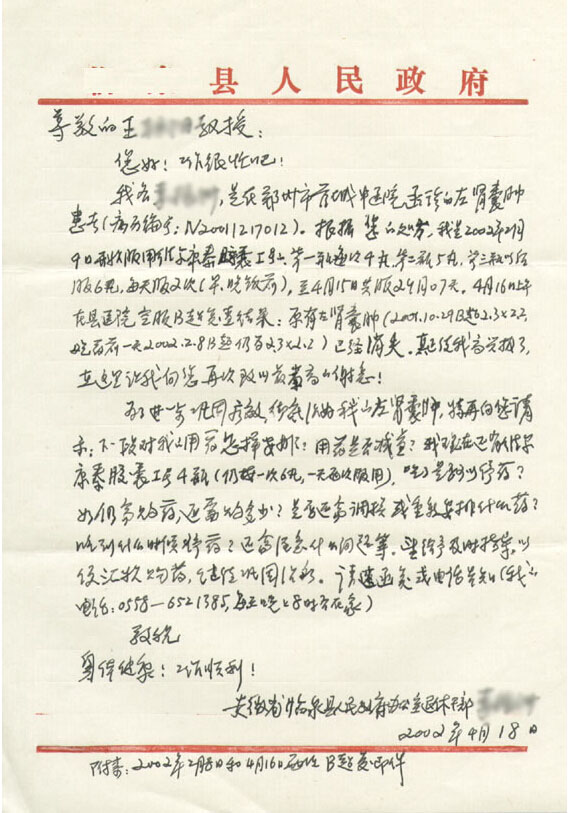 县人民政府
尊敬的王 教授:
您好!工作很忙吧!
我名 ,是在郑州市管城中医院函诊的左肾囊肿
患者(病历编号:N20011217012)。根据您的处方,我是2002年2月
9日开始服用 康泰胶囊1号。第一瓶每次4丸,第二瓶5丸,第三瓶以后
服6丸,每天服2次(早、晚饭前),至4月15日共服2个月07天。4月16日上午
在县医院空腹B超复查结果:原有左肾囊肿(2001.10.29B超2.3×2.2,
吃药前一天2002.2.8B超仍为2.3×2.2)已经消失。真使我高兴极了,
在这里让我向您再次致以最崇高的谢意!
为了进一步巩固疗效,彻底治好我的左肾囊肿,特再向您请
示:下一段对我的用药怎样安排?用药是否减量?我现在还有
康泰胶囊1号4瓶(仍按一次6丸,一天两次服用),吃了是否可以停药?
如仍需购药,还需购多少?是否还需调换或重新安排什么药?
吃到什么时候停药?还需注意什么问题等。望给予及时指导,以
便汇款购药,继续巩固治疗。请速函复或电话告知(我的
电话:0558-6521385,每天晚上8时后在家)
敬祝
身体健康!工作顺利!
安徽省临泉县人民政府办公室退休干部
2002年4月18日
附寄:2002年2月8日和4月16日两次B超复印件